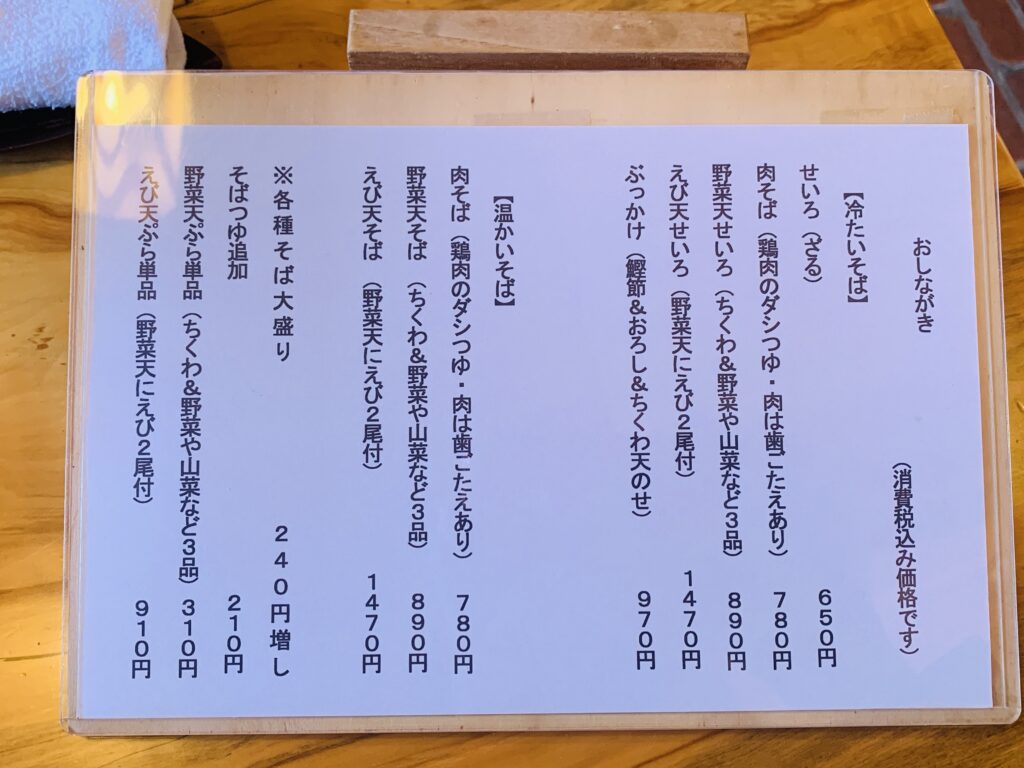 おしながき （消費税込み価格です）
【冷たいそば】
せいろ（ざる） ６５０円
肉そば（鶏肉のダシつゆ・肉は歯ごたえあり） ７８０円
野菜天せいろ（ちくわ＆野菜や山菜など３品） ８９０円
えび天せいろ（野菜天にえび２尾付） １４７０円
ぶっかけ（鰹節＆おろし＆ちくわ天のせ） ９７０円
【温かいそば】
肉そば（鶏肉のダシつゆ・肉は歯ごたえあり） ７８０円
野菜天そば（ちくわ＆野菜や山菜など３品） ８９０円
えび天そば（野菜天にえび２尾付） １４７０円
※各種そば大盛り ２４０円増し
そばつゆ追加 ２１０円
野菜天ぷら単品（ちくわ＆野菜や山菜など３品） ３１０円
えび天ぷら単品（野菜天にえび２尾付） ９１０円